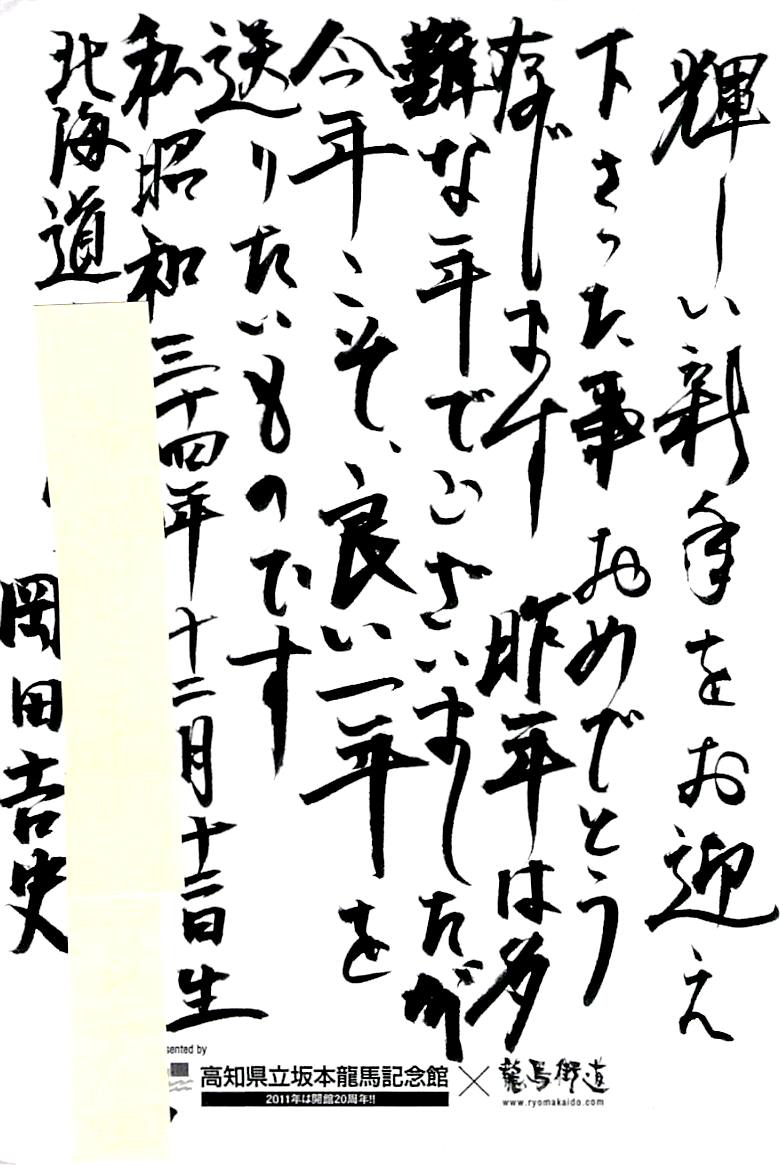 輝しい新年をお迎え
下さった事おめでとう
存じます 昨年は多
難な年でございましたが
今年こそ、良い一年を
送りたいものです
私昭和三十四年十二月十二日生
北海道
岡田吉史
sented by
高知県立坂本龍馬記念館
2011年は開館20周年!!
龍馬街道
www.ryomakaido.com